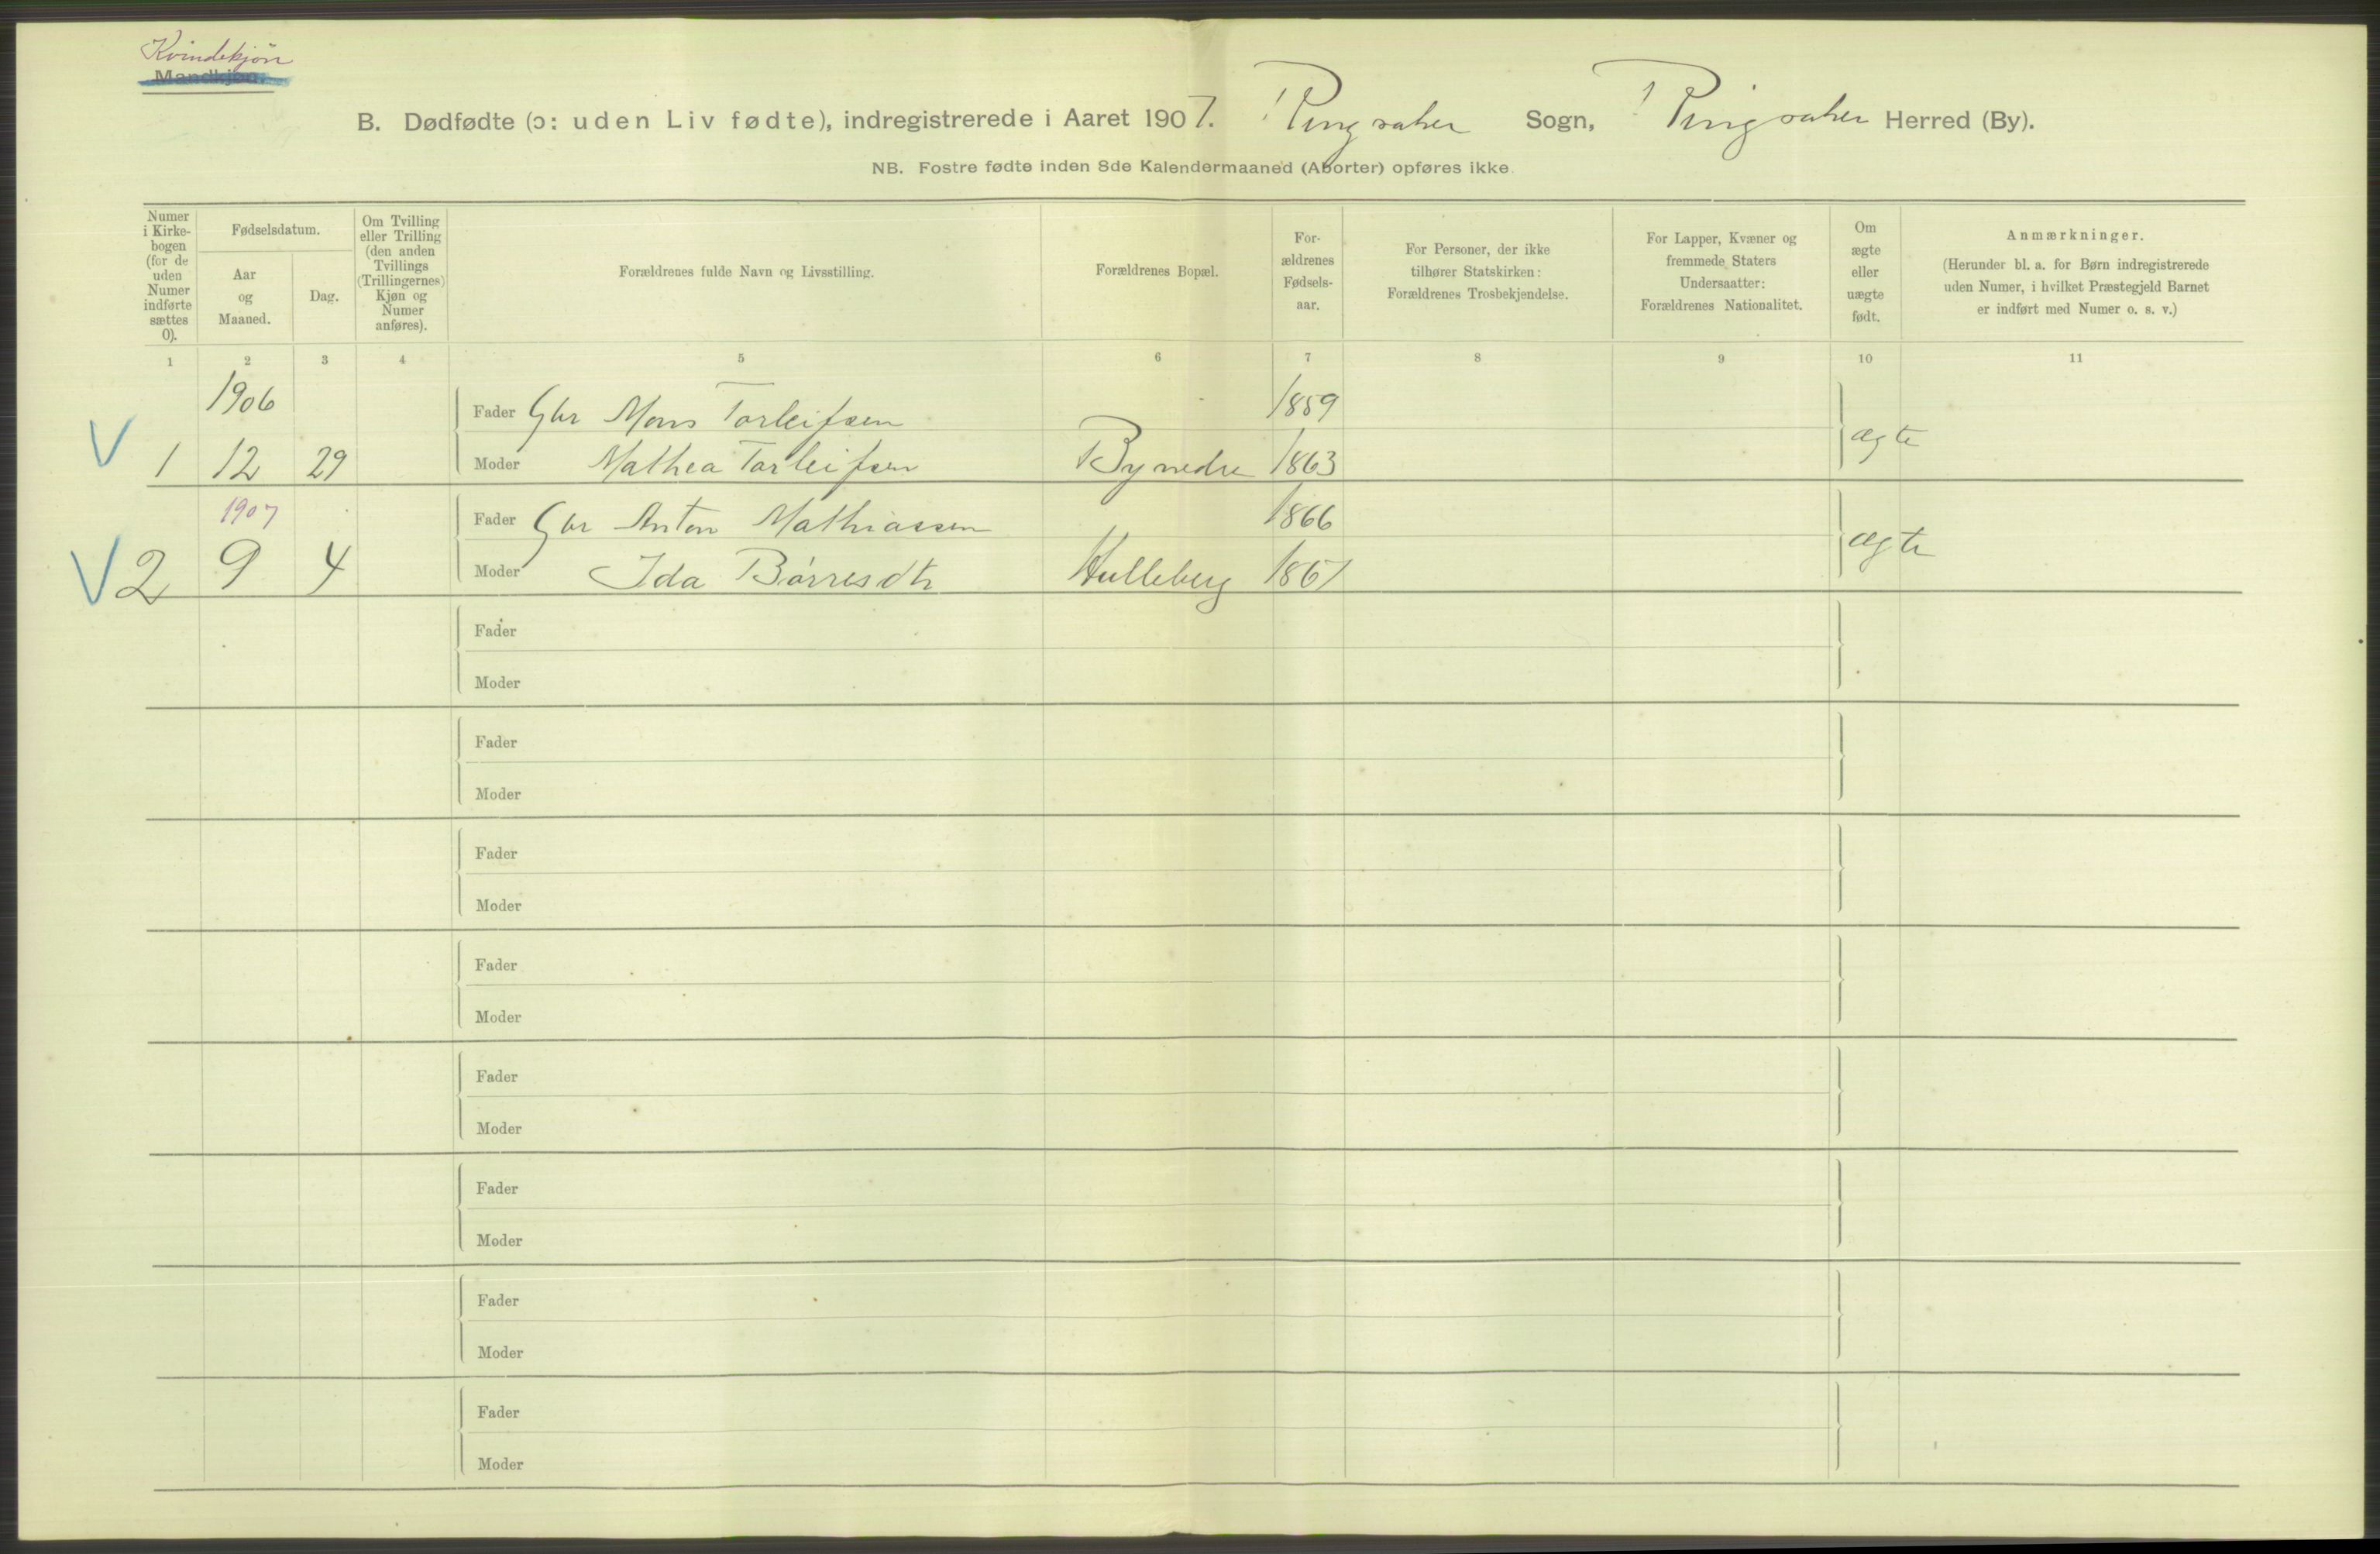 Kvindekjön
Mandkjøn.
B. Dødfødte (ɔ: uden Liv fødte), indregistrerede i Aaret 1907. Ringsaker Sogn, Ringsaker Herred (By).
NB. Fostre fødte inden 8de Kalendermaaned (Aborter) opføres ikke.
Numer i Kirke-bogen (for de uden Numer indførte sættes 0).
Fødselsdatum.
Aar og Maaned.
Dag.
Om Tvilling eller Trilling (den anden Tvillings (Trillingernes) Kjøn og Numer anføres).
Forældrenes fulde Navn og Livsstilling.
Forældrenes Bopæl.
For-ældrenes Fødsels-aar.
For Personer, der ikke tilhører Statskirken: Forældrenes Trosbekjendelse.
For Lapper, Kvæner og fremmede Staters Undersaatter: Forældrenes Nationalitet.
Om ægte eller uægte født.
Anmærkninger.
(Herunder bl. a. for Børn indregistrerede uden Numer, i hvilket Præstegjeld Barnet er indført med Numer o. s. v.)
1 2 3 4 5 6 7 8 9 10 11
1906 Fader Gbr Mons Torleifsen 1859
V 1 12 29 Moder Mathea Torleifsen By nedre 1863 ægte
1907 Fader Gbr Anton Mathiassen 1866
V 2 9 4 Moder Ida Börresdtr Hulleberg 1867 ægte
Fader
Moder
Fader
Moder
Fader
Moder
Fader
Moder
Fader
Moder
Fader
Moder
Fader
Moder
Fader
Moder